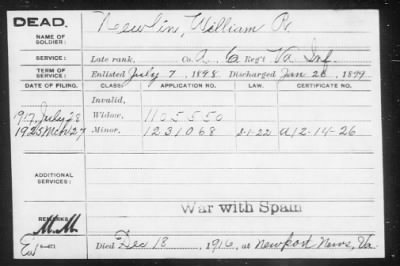 DEAD.
NAME OF SOLDIER: Newlin, William R.
SERVICE: Late rank, Co. A, 6 Reg't Va Inf.
TERM OF SERVICE: Enlisted July 7, 1898 Discharged Jan 26, 1899
DATE OF FILING. CLASS. APPLICATION NO. LAW. CERTIFICATE NO.
Invalid,
1917 July 28 Widow, 1105550
1925 Mch 27 Minor, 1231068 5-1-22 A 12-14-26
ADDITIONAL SERVICES:
War with Spain
REMARKS:
M.M.
Died Dec 18, 1916, at Newport News, Va.